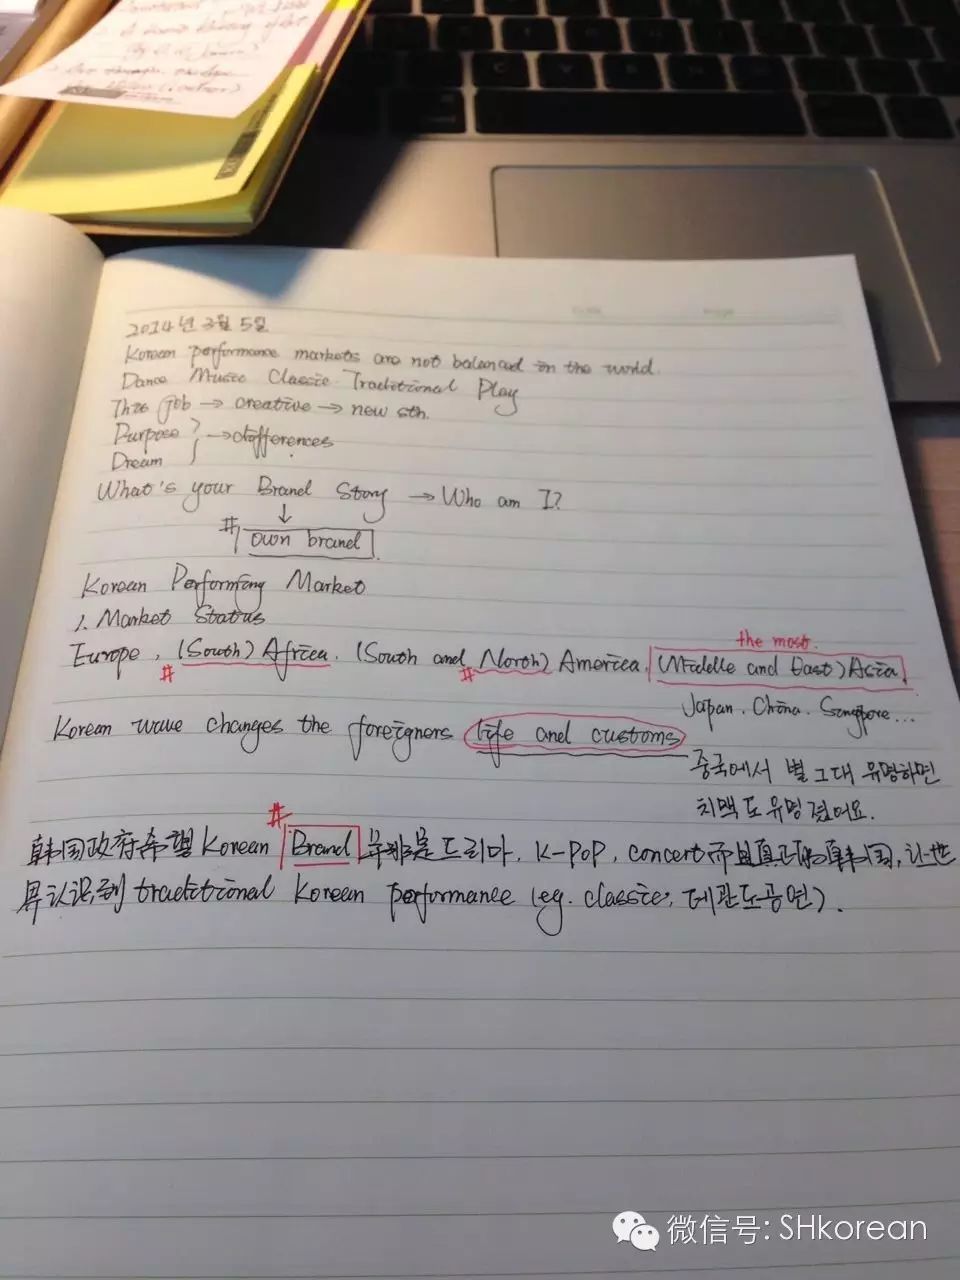 2014년 3월 5일
Korean performance markets are not balanced in the world.
Dance Music Classic Traditional Play
This job → creative → new sth.
Purpose
Dream
→ differences
What's your Brand Story → Who am I?
↓
# own brand
Korean Performing Market
1. Market Status
the most.
Europe, (South) Africa. (South and North) America. (Middle and East) Asia.
# #
Japan. China. Singpore...
Korean wave changes the foreigners life and customs
중국에서 별그대 유명하면
치맥도 유명졌어요.
#
韩国政府希望 Korean Brand 드라마, K-POP, concert 而且真正的韩国, 让世
界认识到 traditional Korean performance (eg. classic, 공연).
微信号: SHkorean